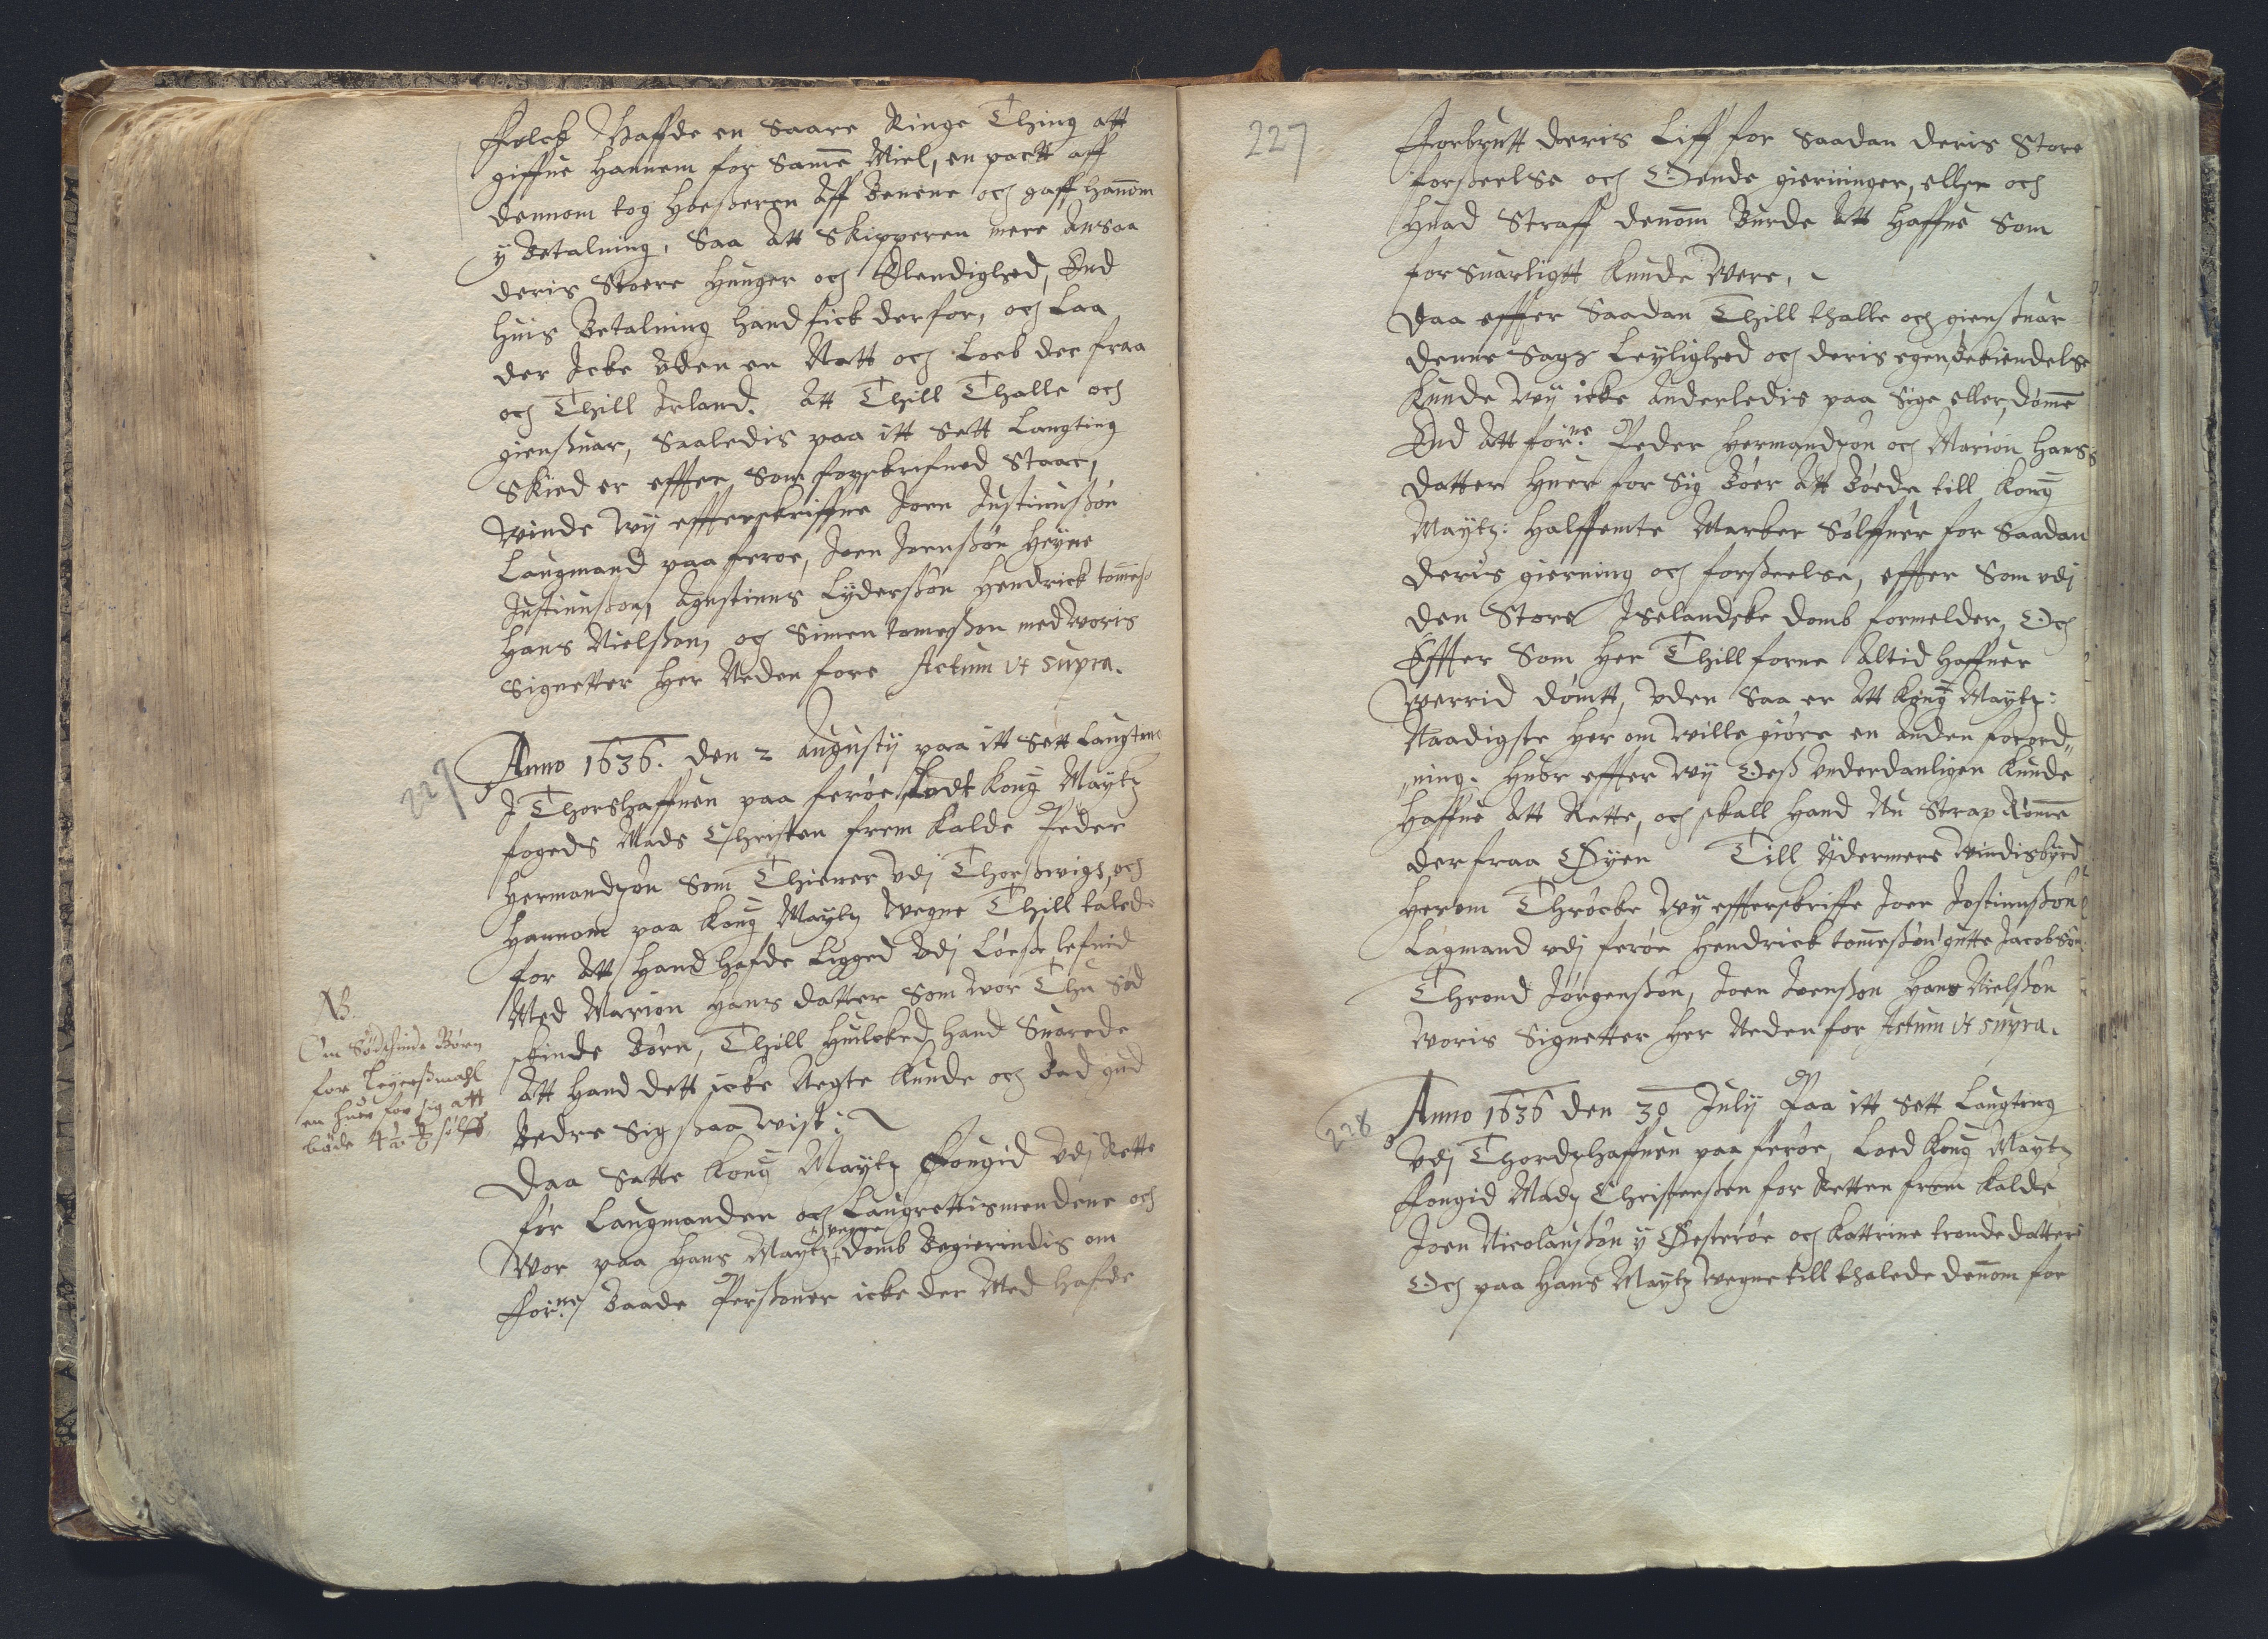 Folck Haffde en Saare Ringe Thing att
giffue Hannem for Samme Miel, en partt aff
dennom tog Hoeßeren Aff Benene och gaff hannom
y Betalning, Saa Att Skipperen mere Ansaa
deris Stoere Hunger och Elendighed, End
huis Betalning hand fick derfor, och Laa
der Icke Vden en Natt och Loeb der fraa
och Thill Irland. Att Thill Thalle och
giensuar, Saaledis paa itt Sett Laugting
Skied er effter som forskrefued Staar,
Vinde Wy effterskriffne Joen Justinußøn
Laugmand paa feroe, Joen Joenßøn Heyne
Justinußon, Agustinus Lyderßøn Hendrick tommeß:
Hans Nielßon, och Simen tomeßon med Woris
Signetter Her Neden fore Actum Vt Supra.
227
Anno 1636. den 2 Augustij paa itt Sett Laugting
J Thorshaffnen paa feroe Lodt Kong Maytz
fogeds Mads Christen frem Kalde Peder
Hermandzøn Som Thiener Vdj Thorßwigs, och
Hannom paa Kong Maytz Vegne Thill talede
for Att Hand Hafde Ligged Vdj Løeße lefnid
Med Marion Hans datter Som Wor Thu Sød
skinde Børn, Thill Huilcked Hand Suarede
Att Hand dett icke Negte Kunde och Bad gud
Bedre Sig ßaa Vist:
NB.
Om Sødskinde Børn
for Leyerßmahl
en huer for sig att
bøde 4 1/2 sølff
Daa Satte Kong Maytz Fougid Vdj Rette
for Laugmanden och Laugrettismendene och
Wor paa Hans Maytz Vegne domb Begierindis om
forne Baade Persßoner icke der Med Hafde
227
Forbrutt deris Liff for Saadan deris Store
forßeelse och Onde gierninger, eller och
Huad Straff dennom Burde Att Haffue Som
forsuarligtt Kunde Were,
Daa effter Saadan Thill thalle och gienßuar
denne Sags Leylighed och deris egen bekiendelse
Kunde Wy icke Anderledis paa Sige eller dømme
End Att forne Peder Hermandzøn och Marion Hans
datter Huer for Sig Bøer Att Bøede till Kong
Maytz: Halffemte Marker Sølffuer for Saadan
deris gierning och forßeelse, effter Som vdj
den Store Iselandske domb formelder, Och
Effter Som Her Thill forne Altid Haffuer
Werrid dømtt, Vden Saa er Att Kong Maytz:
Naadigste Her om Wille giøre en Anden forord„
„ning. Huor effter Wy Oeß Vnderdanligen Kunde
Haffue Att Rette, och skall Hand Nu Strax Rømme
der fraa Øyen Till Ydermere Vindisbyrd
Herom Thrøcke Wy effterskriffne Joen Jostinußøn
Lagmand vdj ferøe Hendrick tommeßøn gutte Jacobßøn
Thrond Jørgenßøn, Joen Joenßøn Hans Nielßøn
Woris Signetter Her Neden for Actum Vt Supra.
228
Anno 1636 den 30 July Paa itt Sett Laugting
Vdj Thordzhaffnen paa ferøe, Loed Kong Maytz
Fougid Madz Christenßen for Retten frem Kalde
Joen Nicolaußøn y Østerøe och Kattrine tronde datter
Och paa Hans Maytz Vegne till thalede dennom for